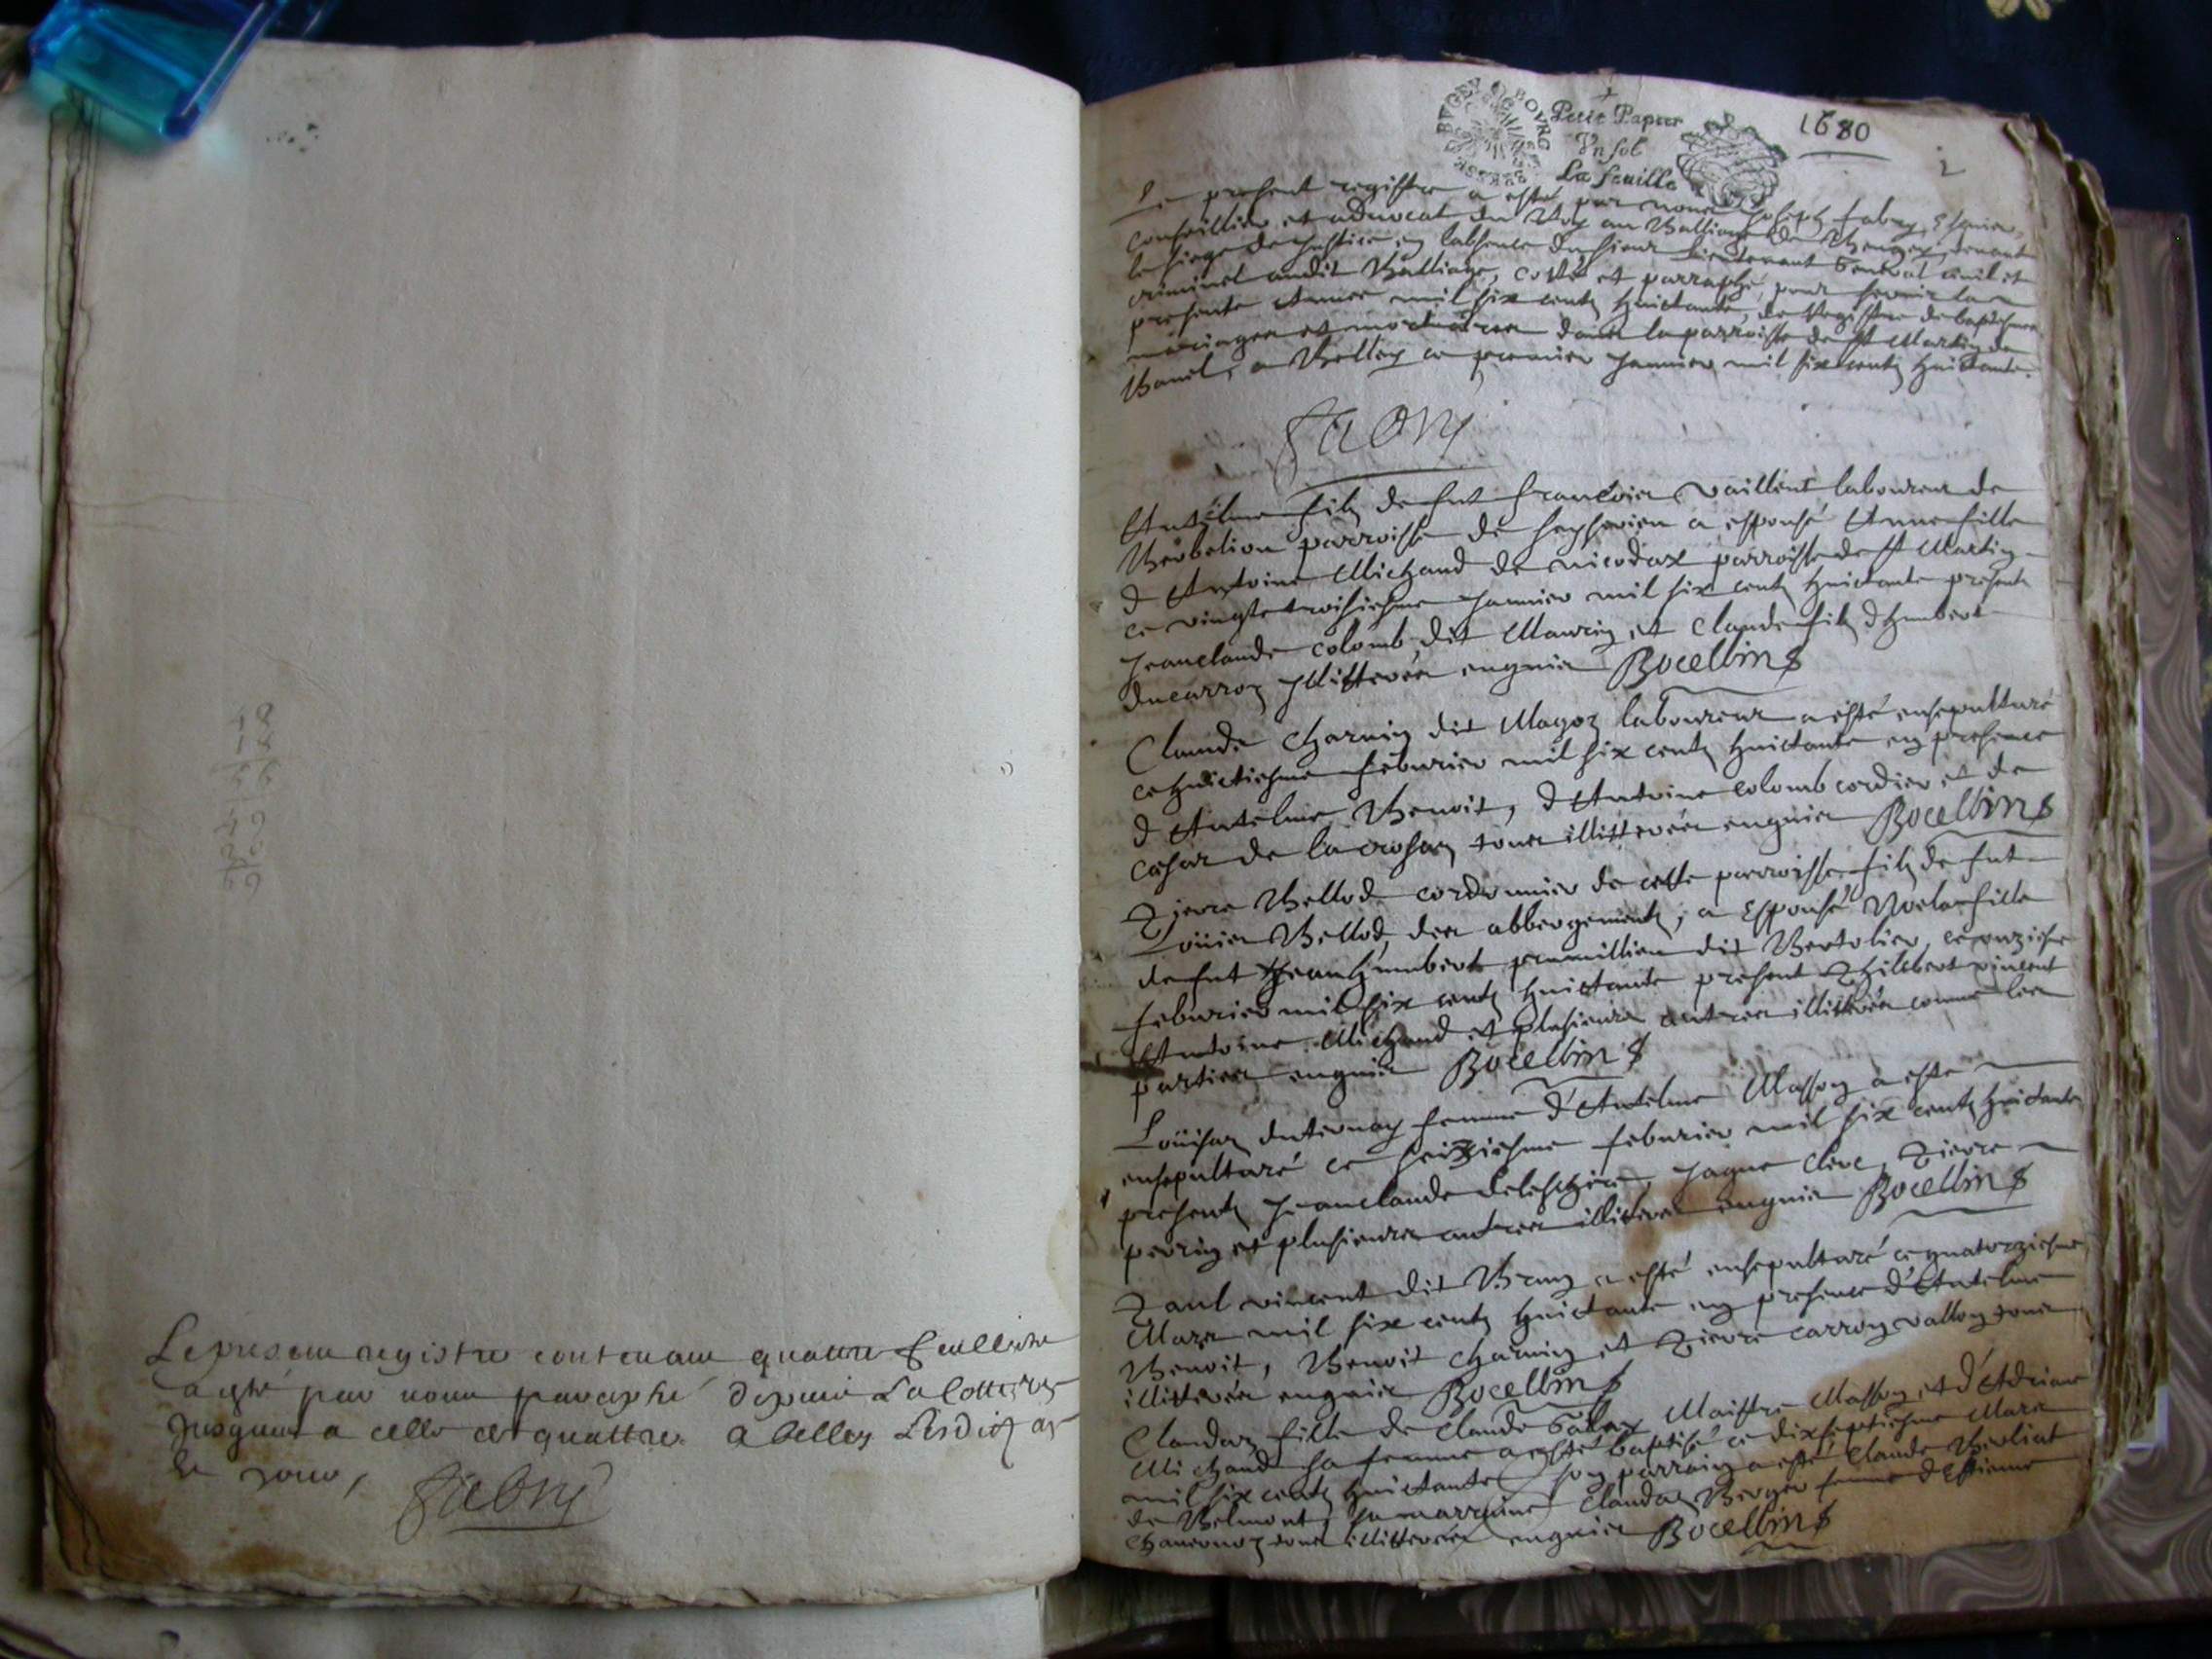 48
18
66
49
20
69
Le present registre contenant quattre feulliets
a esté par nous paraphé depuis La Cotte
Jusques a celle de quattre a belley Lesdit an
et jour,
Fabry
BOURG
BUGEY
Petit Papier
Un sol
La feuille
1680
Le present registre a esté par nous Joseph fabry Escuier,
conseillier et advocat du Roy au Balliage de Beugey, tenant
le siege de justice en labsence du sieur Lieutenant General civil et
criminel audit Balliage, cotté et parraphé, pour servir la
presente Annee mil six centz huictante, de Registre de baptesmes
mariages et mortuaires dans la parroisse de St Martin de
Bavel, a Belley ce premier Janvier mil six centz huictante.
Fabry
Anthelme filz de fut francois vaillent laboureur de
parroisse de a espousé Anne fille
d Antoine Michaud de parroisse de St Martin
ce vingte troisiesme Janvier mil six centz huictante presents
Jeanclaude colomb dit Maurin et Claude filz d humbert
ducarroz illitterés enquis Bocellin
Claude charvin dit Magoz laboureur a esté ensepulturé
ce huictiesme febvrier mil six centz huictante en presence
d Antelme Benoit, d Antoine colomb cordier et de
cesar de la tous illitterés enquis Bocellin
Pierre Bellod cordonnier de cette parroisse filz de fut
Loüis Bellod des abbergements, a Espousé Noela fille
de fut Jean humbert dit Bertolier, ce onziesme
febvrier mil six centz huictante present Philibert vincent
Antoine Michaud et plusieurs autres illitterés comme les
parties enquis Bocellin
Loüisaz duternay femme d'Antelme Masson a esté
ensepulturé ce seiziesme febvrier mil six centz huictante
presents Jeanclaude Jaque Clerc, Pierre
perrin et plusieurs autres illiterés enquis Bocellin
Paul vincent dit Brun a esté ensepulturé ce quatorziesme
Mars mil six centz huictante en presence d'Antelme
Benoit, Benoit charvin et Pierre carron vallon tous
illitterés enquis Bocellin
Claudaz fille de Claude Maistre Masson et d'Adriane
Michaud sa femme a esté baptisé ce dixseptiesme Mars
mil six centz huictante son parrain a esté Claude Berliat
de Belmont, sa marraine Claudaz Berger femme d Estienne
tous illitterés enquis Bocellin